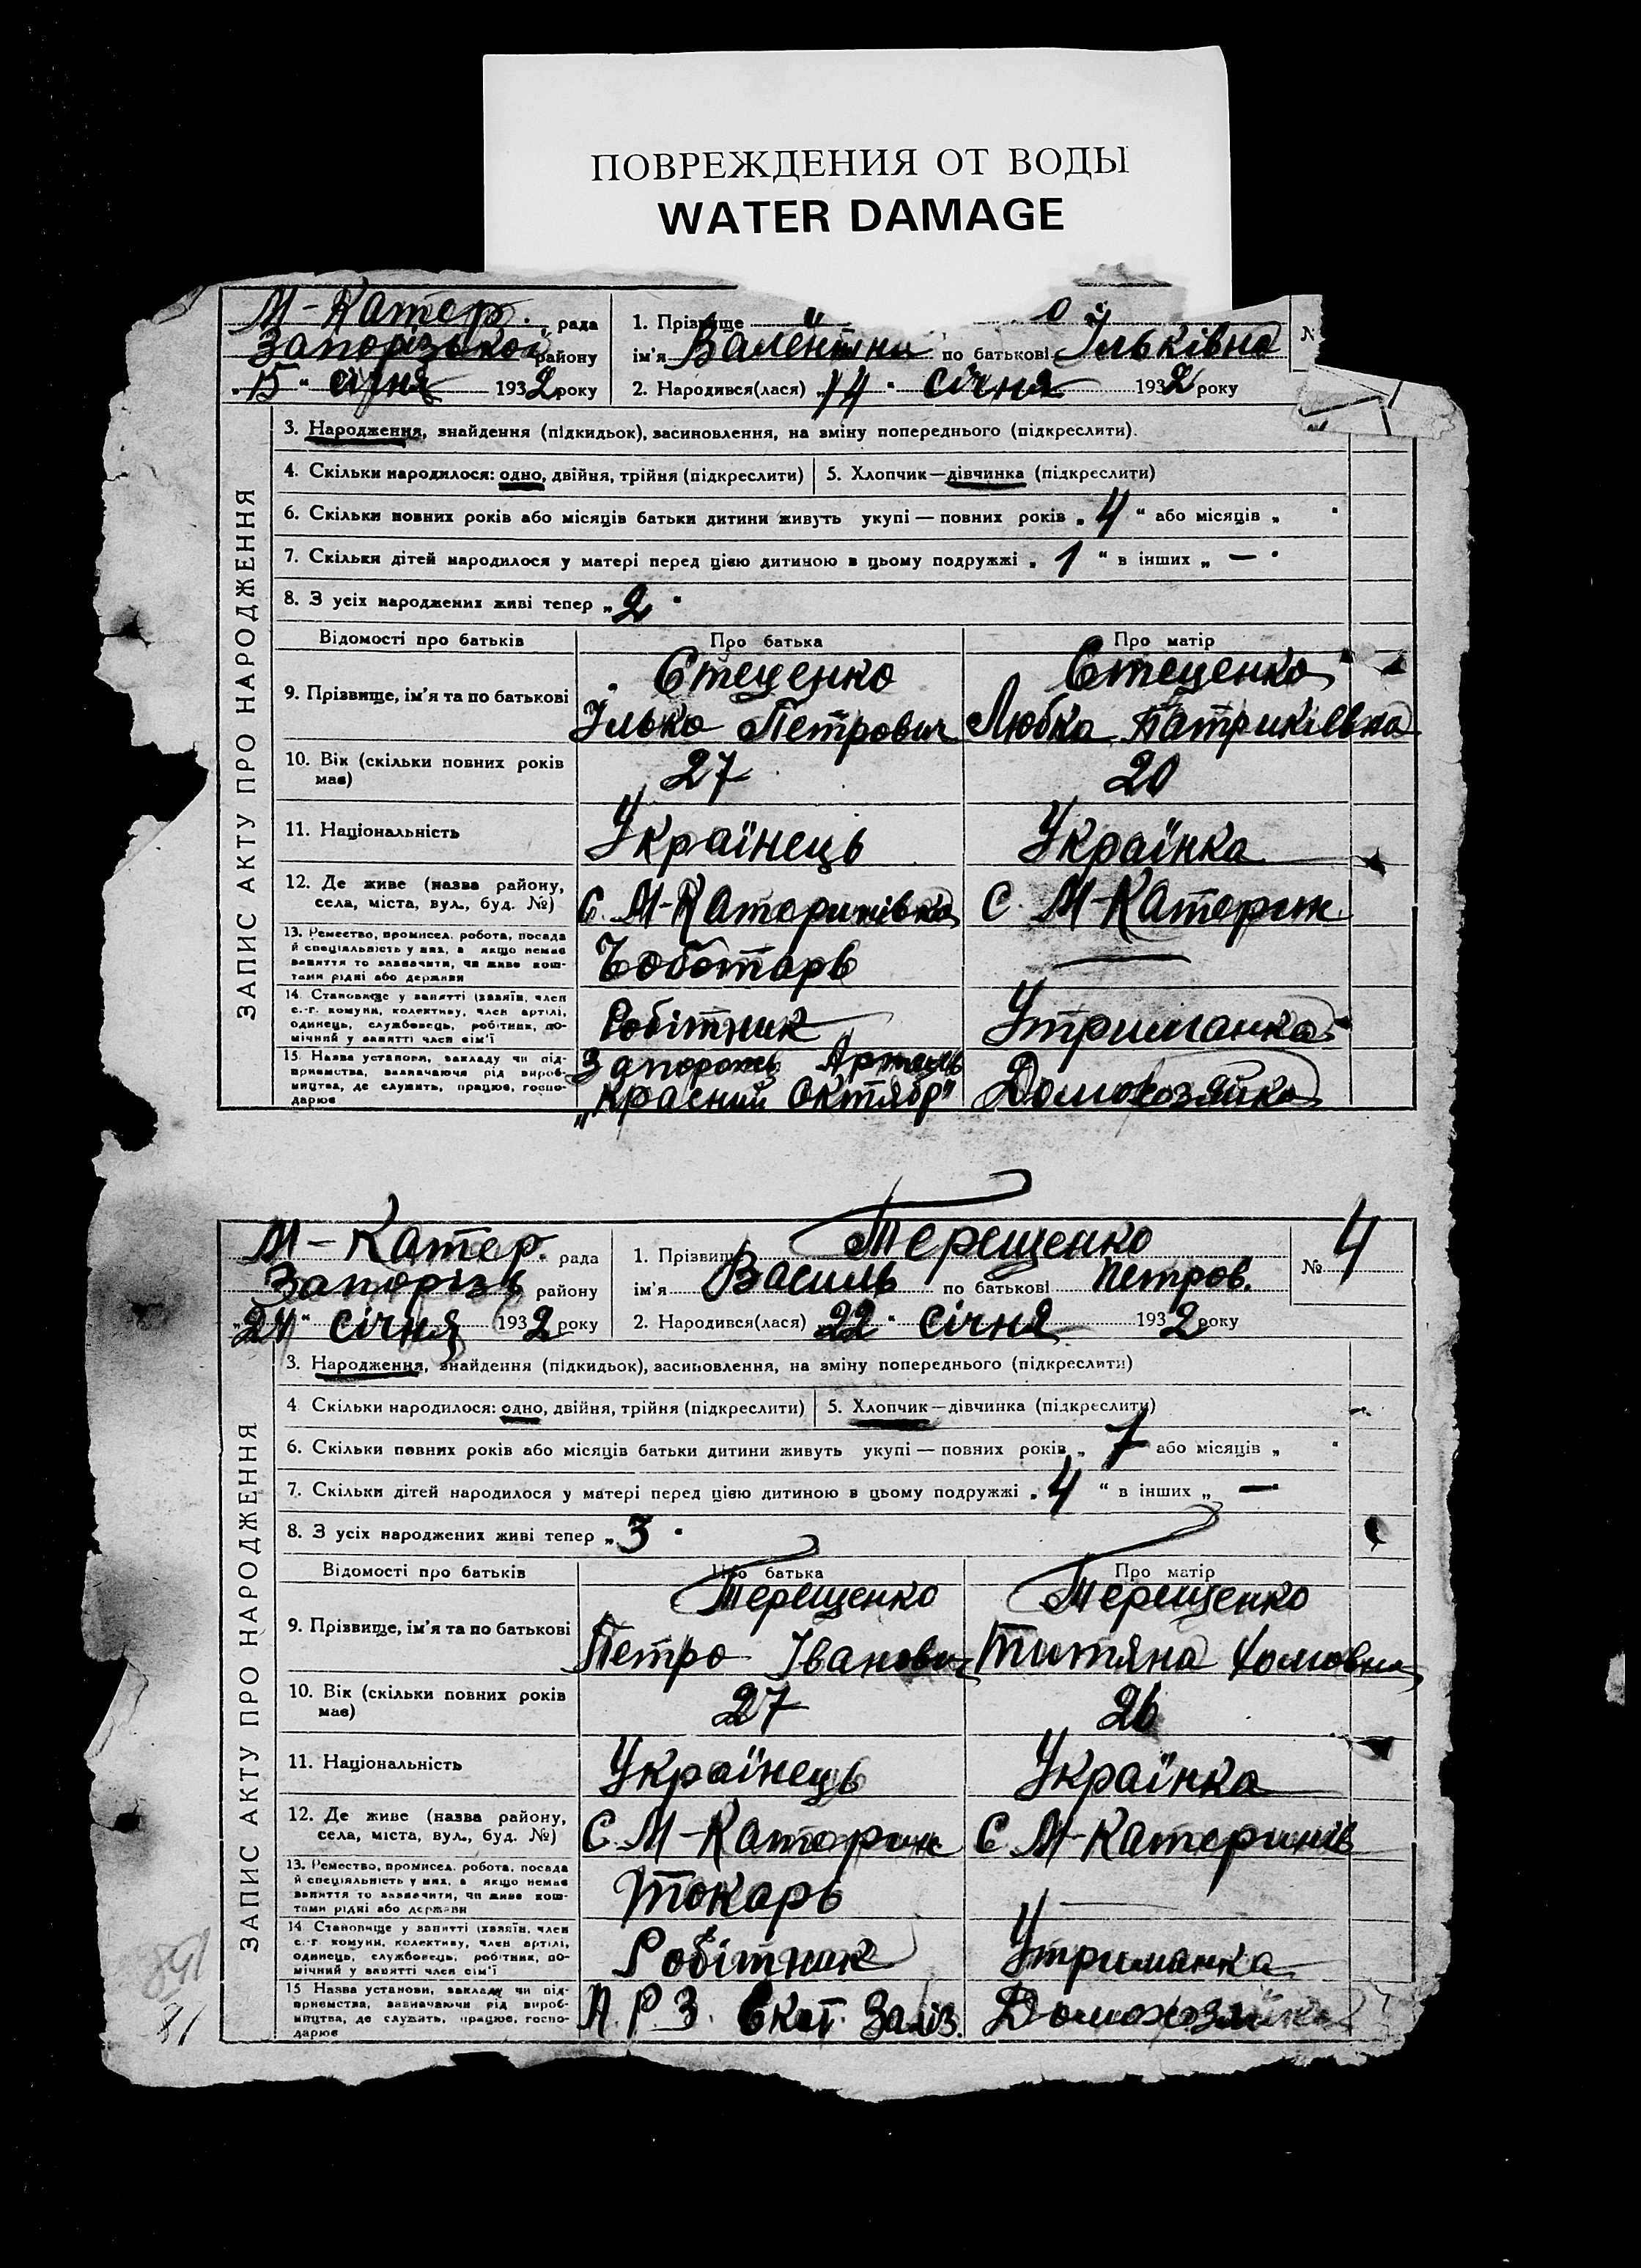 ПОВРЕЖДЕНИЯ ОТ ВОДЫ
WATER DAMAGE
М-Катер. рада
Запорізького району
„15" січня 1932 року
1. Прізвище
ім'я Валентина по батькові Ільківна
2. Народився(лася) „14" січня 1932 року
№
ЗАПИС АКТУ ПРО НАРОДЖЕННЯ
3. Народження, знайдення (підкидьок), засиновлення, на зміну попереднього (підкреслити).
4. Скільки народилося: одно, двійня, трійня (підкреслити) 5. Хлопчик—дівчинка (підкреслити)
6. Скільки повних років або місяців батьки дитини живуть укупі — повних років „4" або місяців „ "
7. Скільки дітей народилося у матері перед цією дитиною в цьому подружжі „1" в інших „—"
8. З усіх народжених живі тепер „2"
Відомості про батьків Про батька Про матір
9. Прізвище, ім'я та по батькові
Стеценко Стеценко
Ілько Петрович Любка Патрикіївна
10. Вік (скільки повних років має) 27 20
11. Національність Українець Українка
12. Де живе (назва району, села, міста, вул., буд. №) С. М-Катеринівка С. М-Катерин.
13. Ремество, промисел, робота, посада
й спеціяльність у них, а якщо немає
заняття то зазначити, чи живе кош-
тами рідні або держави
Чоботарь —
14. Становище у занятті (хазяїн, член
с.-г. комуни, колективу, член артілі,
одинець, службовець, робітник, по-
мічний у занятті член сім'ї
Робітник Утриманка
15. Назва установи, закладу чи під-
приємства, зазначаючи рід вироб-
ництва, де служить, працює, госпо-
дарює
Запорожь Артель
„Красний Октябр" Домохозяйка
М-Катер. рада
Запорізь району
„24" січня 1932 року
1. Прізвище Терещенко
ім'я Василь по батькові Петров.
2. Народився(лася) 22" січня 1932 року
№ 4
ЗАПИС АКТУ ПРО НАРОДЖЕННЯ
3. Народження, знайдення (підкидьок), засиновлення, на зміну попереднього (підкреслити)
4 Скільки народилося: одно, двійня, трійня (підкреслити) 5. Хлопчик—дівчинка (підкреслити)
6. Скільки повних років або місяців батьки дитини живуть укупі — повних років „7 або місяців „ "
7. Скільки дітей народилося у матері перед цією дитиною в цьому подружжі „4" в інших „—
8. З усіх народжених живі тепер „3"
Відомості про батьків Про батька Про матір
9. Прізвище, ім'я та по батькові
Терещенко Терещенко
Петро Іванович Титяна Хомовна
10. Вік (скільки повних років має) 27 26
11. Національність Українець Українка
12. Де живе (назва району, села, міста, вул., буд. №) С. М-Катерин С. М-Катеринів
13. Ремество, промисел, робота, посада
й спеціяльність у них, а якщо немає
заняття то зазначити, чи живе кош-
тами рідні або держави
Токарь —
14. Становище у занятті (хазяїн, член
с.-г. комуни, колективу, член артілі,
одинець, службовець, робітник, по-
мічний у занятті член сім'ї
Робітник Утриманка
15 Назва установи, закладу чи під-
приємства, зазначаючи рід вироб-
ництва, де служить, працює, госпо-
дарює
П. Р. З. Єкат. Заліз. Домохозяйка